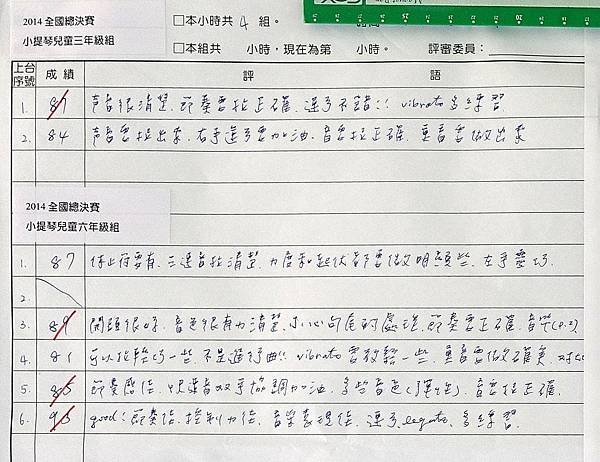 2014 全國總決賽
小提琴兒童三年級組
□本小時共 4 組。
□本組共 小時，現在為第 小時。 評審委員：
上台序號 成績 評 語
1. 87 声音很清楚、節奏要拉正確、運弓不錯!! vibrato 多練習
2. 84 声音要拉出來、右手運弓要加油、音要拉正確、重音要做出來
2014 全國總決賽
小提琴兒童六年級組
1. 87 休止符要有、三連音拉清楚、力度和起伏都要做文明顯些、左手靈巧.
2.
3. 89 開頭很好、音色很有力清楚、小心句尾的處理、節奏要正確、音準(P.2)
4. 81 可以拉輕巧一些、不是進行曲!! vibrato 要放鬆一些、重音要做文確實、
5. 85 節奏感佳、快速音双手協調加油、多些音色、音要拉正確.
6. 95 good! 節奏佳、控制力佳、音樂表現佳、連弓、legato、多練習.